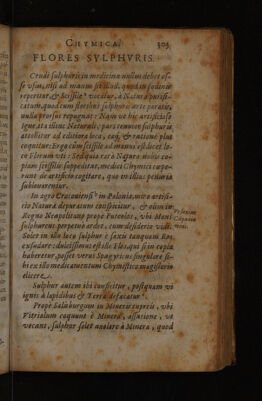 CHYMICA. 305
FLORES SVLPHVRIS.
Crudi sulphuris in medicina nullus debet es-
se usus, nisi ad manum sit illud, quod in fodinis
repertur, & Scissile vocatur, à Natura purifi-
catum, quod cum floribus sulphuris arte paratis,
nulla prorsus repugnat: Nam ut hic artificiose
Igne, ita illinc Naturali, pars tenuior sulphuris
attollitur ad editiora loca, eaq́; ratione plus
cognitus: Ergo cùm scissile ad manus est, licet lo-
co Florum uti: Sed quia rarò Natura nobis co-
piam scissilis suppeditat, medici Chymici cœpe-
runt de artificio cogitare, quo in illius penuria
subleuarentur.
In agro Cracouiensi in Polonia, miro artifi-
cio Natura depuratum conficitur, & olim in
Regno Neapolitano propè Puteolos, vbi Mons
sulphureus perpetuò ardet, eum desiderio vidi.
Solet in illo loco sulphur è saxis tanquam Ros
exsudare: dulcissimus est ille Flos, qui si in copia
haberetur, posset verus Spagyricus singulare si-
bi ex illo medicamentum Chymistico magisterio
elicere.
Sulphur autem ibi conficitur, postquam vi
ignis à lapidibus & Terra defæcatur.
Propè Salisburgum in Mineris cupreis, vbi
Vitriolum coquunt è Minera, assusione, ut
vocant, sulphur solet auolare à Minera, quod